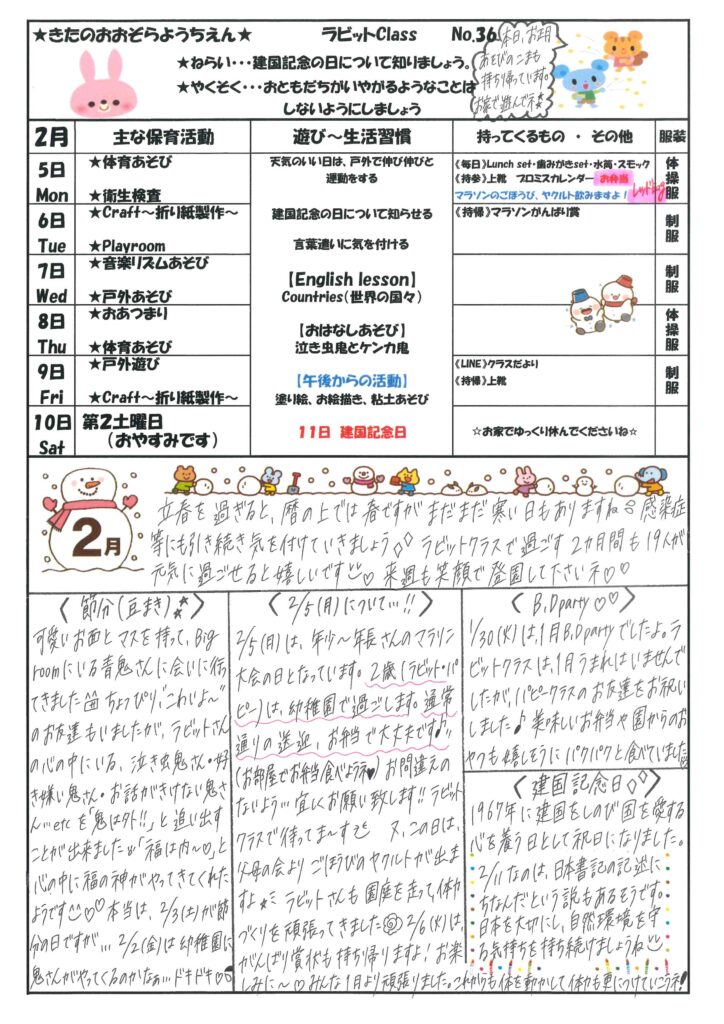 ★きたのおおぞらようちえん★ ラビットClass No.36
★ねらい・・・建国記念の日について知りましょう。
★やくそく・・・おともだちがいやがるようなことは
しないようにしましょう
本日、お正月
あそびのこまも
持ち帰っています。
お家で遊んでネ☆
2月 主な保育活動 遊び～生活習慣 持ってくるもの ・ その他 服装
5日 Mon
★体育あそび
★衛生検査
天気のいい日は、戸外で伸び伸びと
運動をする
《毎日》Lunch set・歯みがきset・水筒・スモック
《持参》上靴 プロミスカレンダー お弁当
レッドbag
マラソンのごほうび、ヤクルト飲みますよ！
体操服
6日 Tue
★Craft～折り紙製作～
★Playroom
建国記念の日について知らせる
言葉遣いに気を付ける
《持帰》マラソンがんばり賞
制服
7日 Wed
★音楽リズムあそび
★戸外あそび
【English lesson】
Countries（世界の国々）
制服
8日 Thu
★おあつまり
★体育あそび
【おはなしあそび】
泣き虫鬼とケンカ鬼
体操服
9日 Fri
★戸外遊び
★Craft～折り紙製作～
【午後からの活動】
塗り絵、お絵描き、粘土あそび
《LINE》クラスだより
《持帰》上靴
制服
10日 Sat
第2土曜日
（おやすみです）
11日 建国記念日
☆お家でゆっくり休んでくださいね☆
2月
立春を過ぎると、暦の上では春ですがまだまだ寒い日もありますね 感染症
等にも引き続き気を付けていきましょう◇◇ ラビットクラスで過ごす2カ月間も19人が
元気に過ごせると嬉しいです♡ 来週も笑顔で登園して下さいネ♡♡
〈節分(豆まき)☆〉
可愛いお面とマスを持って、Big
roomにいる青鬼さんに会いに行っ
てきました ちょっぴり、"こわいよ～"
のお友達もいましたが、ラビットさん
の心の中にいる、泣き虫鬼さん・好
き嫌い鬼さん・お話がきけない鬼さ
ん…etcを「鬼は外!!」と追い出す
ことが出来ました 「福は内～♡」と
心の中に福の神がやってきてくれた
ようです♡♡ 本当は、2/3(土)が節
分の日ですが… 2/2(金)は幼稚園に
鬼さんがやってくるのかなぁ…ドキドキ♡♡
〈2/5(月)について…!!〉
2/5(月)は、年少～年長さんのマラソン
大会の日となっています。2歳(ラビット・パ
ピー)は、幼稚園で過ごします。通常
通りの送迎、お弁当で大丈夫です♪
(お部屋でお弁当食べようネ♥) お間違えの
ないよう…宜しくお願い致します!! ラビット
クラスで待ってま～す 又、この日は、
父母の会よりごほうびのヤクルトが出ま
すよ ラビットさんも園庭を走って、体力
づくりを頑張ってきました 2/6(火)は、
がんばり賞状も持ち帰りますよ！お楽
しみに～♡ みんな1月より頑張りました。これからも体を動かして体力も更につけていこうネ！
〈B.Dparty♡♡〉
1/30(火)は、1月B.Dpartyでしたよ。ラ
ビットクラスは、1月うまれはいませんで
したが、パピークラスのお友達をお祝い
しました♪ 美味しいお弁当や園からのお
やつも嬉しそうにパクパクと食べていました
〈建国記念日◇◇〉
1967年に建国をしのび国を愛する
心を養う日として祝日になりました。
2/11なのは、日本書記の記述に
ちなんだという説もあるそうです。
日本を大切にし、自然環境を守
る気持ちを持ち続けましょうね